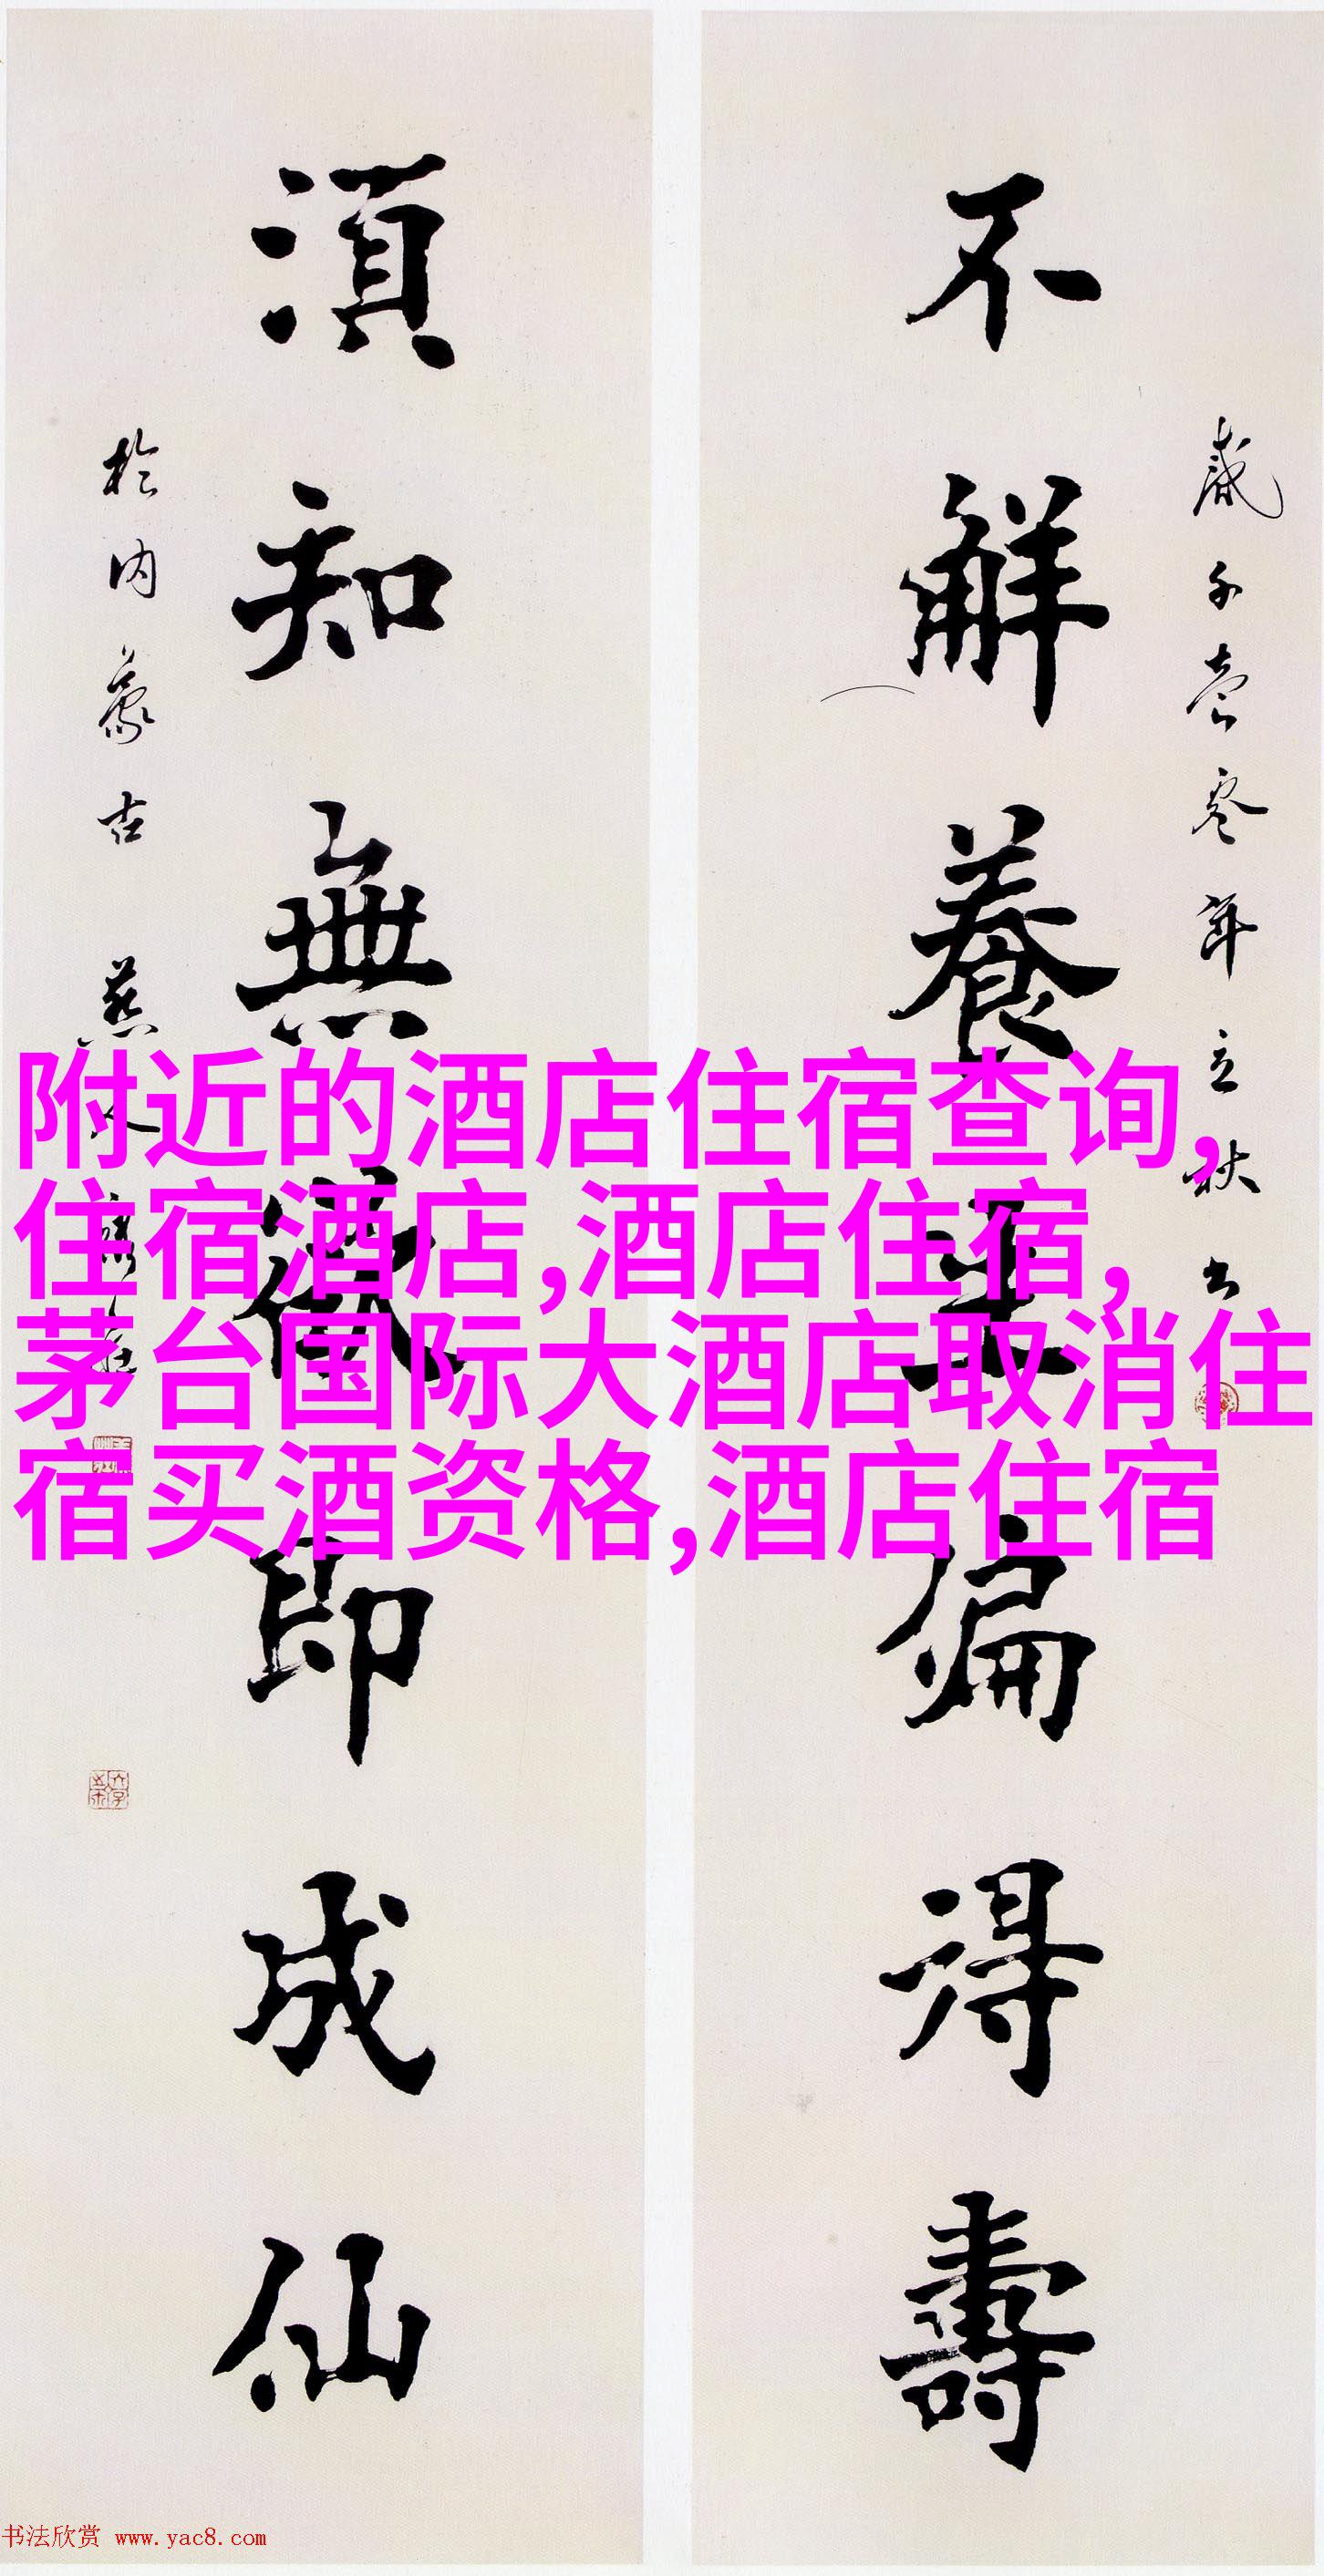 不解養生偏得壽
須知無欲即成仙
於内蒙古
附近的酒店住宿查询,
住宿酒店,酒店住宿,
茅台国际大酒店取消住
宿买酒资格,酒店住宿
书法欣赏 www.yac8.com